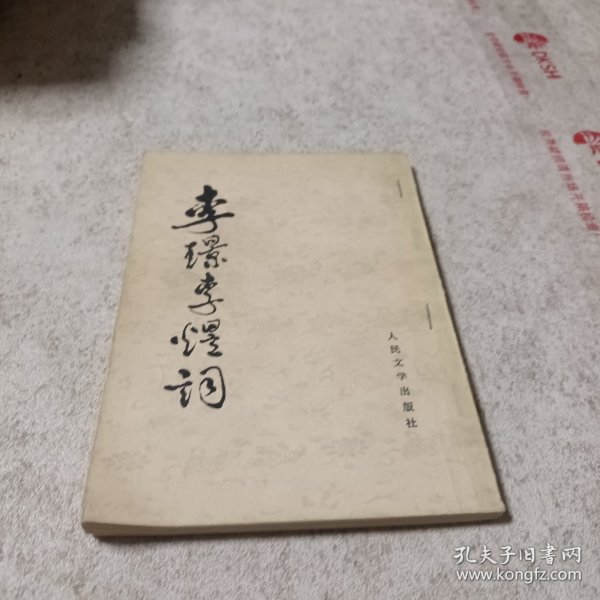 李璟李煜詞
人民文学出版社
DKSH
孔夫子旧书网
www.kongfz.com